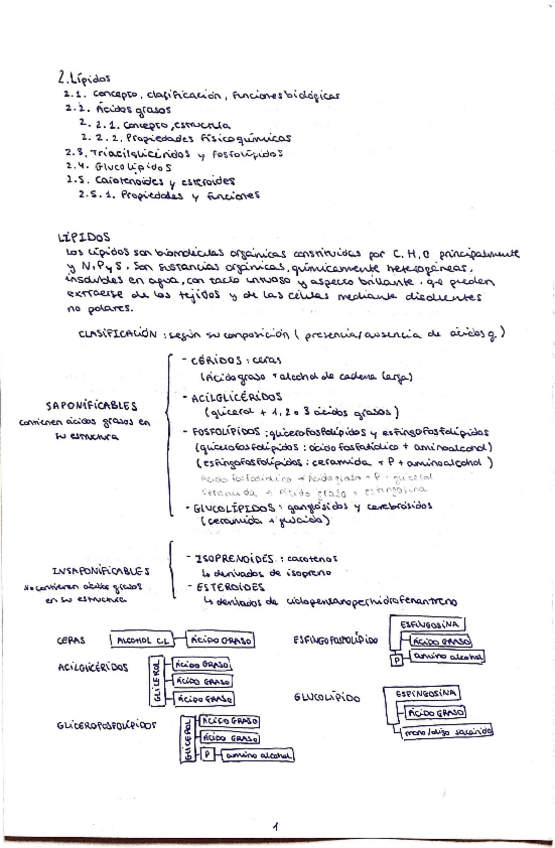 2. Lípidos
2.1. Concepto, clasificación, funciones biológicas
2.2. Ácidos grasos
2.2.1. Concepto, estructura
2.2.2. Propiedades fisicoquímicas
2.3. Triacilglicéridos y fosfolípidos
2.4. Glucolípidos
2.5. Carotenoides y esteroides
2.5.1. Propiedades y funciones
LÍPIDOS
Los lípidos son biomoléculas orgánicas constituidas por C, H, O principalmente
y N, P y S. Son sustancias orgánicas, químicamente heterogéneas,
insolubles en agua, con tacto untuoso y aspecto brillante, que pueden
extraerse de los tejidos y de las células mediante disolventes
no polares.
CLASIFICACIÓN : según su composición ( presencia/ausencia de ácidos g.)
SAPONIFICABLES
contienen ácidos grasos en
su estructura
- CÉRIDOS : ceras
(Ácido graso + alcohol de cadena larga)
- ACILGLICÉRIDOS
(glicerol + 1, 2 o 3 ácidos grasos)
- FOSFOLÍPIDOS : glicerofosfolípidos y esfingofosfolípidos
(glicerofosfolípidos : ácido fosfatídico + aminoalcohol)
(esfingofosfolípidos : ceramida + P + aminoalcohol)
Ácido fosfatídico → Ácido graso + P + glicerol
Ceramida → Ácido graso + esfingosina
- GLUCOLÍPIDOS : gangliósidos y cerebrósidos
(ceramida + glúcido)
INSAPONIFICABLES
No contienen ácidos grasos
en su estructura
- ISOPRENOIDES : carotenos
↳ derivados de isopreno
- ESTEROIDES
↳ derivados de ciclopentanoperhidrofenantreno
CERAS
ALCOHOL C.L
ÁCIDO GRASO
ACILGLICÉRIDOS
GLICEROL
ÁCIDO GRASO
ÁCIDO GRASO
ÁCIDO GRASO
GLICEROFOSFOLÍPIDOS
GLICEROL
ÁCIDO GRASO
ÁCIDO GRASO
P
amino alcohol
ESFINGOFOSFOLÍPIDO
ESFINGOSINA
ÁCIDO GRASO
P
amino alcohol
GLUCOLÍPIDO
ESFINGOSINA
ÁCIDO GRASO
mono/oligo sacárido
1